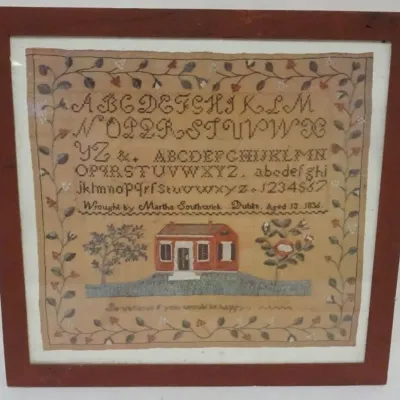 ABCDEFGHIKLM
NOPQRSTUVWX
YZ &. ABCDEFGHIJKLMN
OPQRSTUVWXYZ. abcdefghi
jklmnopqrſstuvwxyz. 1234567
Wrought by Martha Southwick Dublin. Aged 12. 1836.
Be virtuous if you would be happy